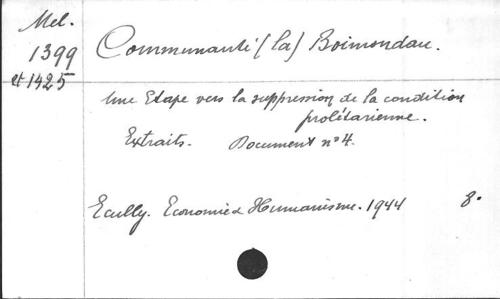 Mel.
1399
et 1425
Communauté (la) Boimondau.
Une Etape vers la suppression de la condition
prolétarienne.
Extraits. Document nº 4.
Ecully. Economie & Humanisme. 1944 8.